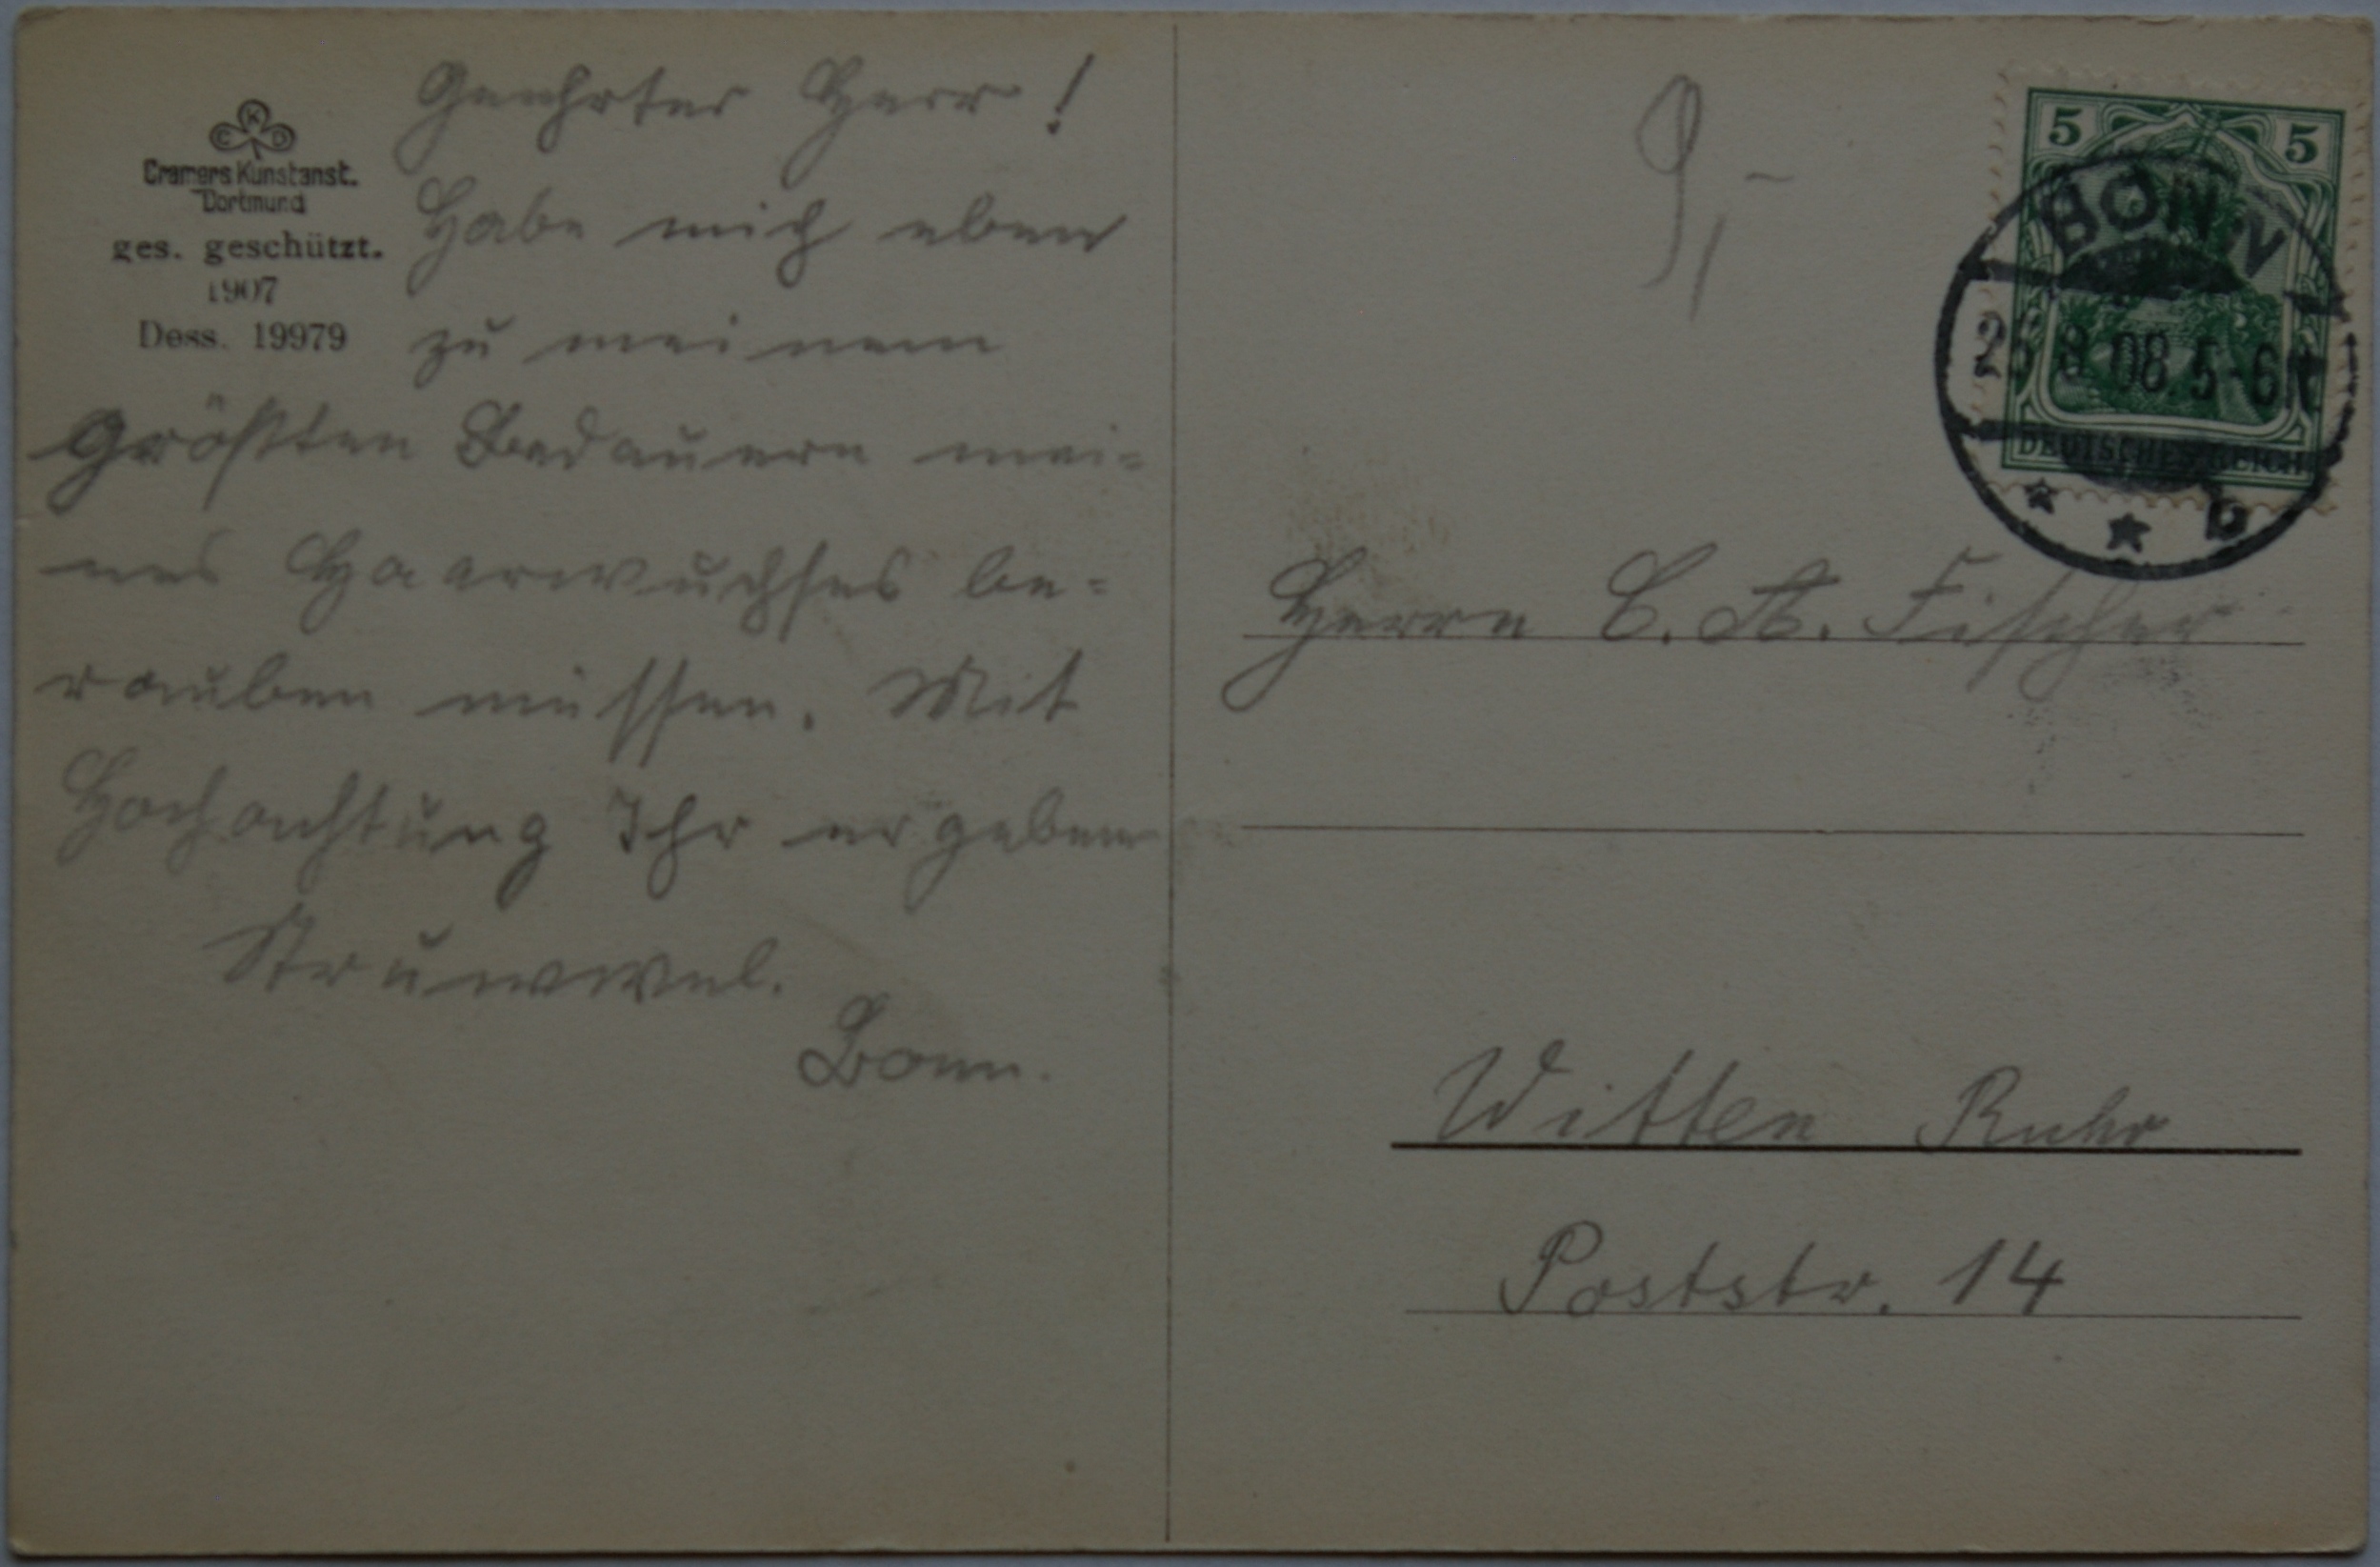 C K D
Cramers Kunstanst.
Dortmund
ges. geschützt.
1907
Dess. 19979
Geehrter Herr!
Habe mich eben
zu meinem
größten Bedauern mei-
nes Haarwuchses be-
rauben müssen. Mit
Hochachtung Ihr ergeben
Struwwel.
Bonn.
9,-
5 5
BONN
08.5-6N
DEUTSCHES REICH
* * b
Herrn C. A. Fischer
Witten Ruhr
Poststr. 14